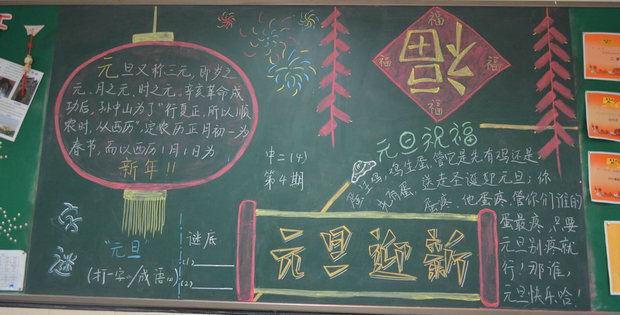 元旦又称三元,即岁之
元、月之元、时之元。辛亥革命成
功后,孙中山为了"行夏正,所以顺
农时,从西历",定农历正月初一为
春节,而以西历1月1日为
新年!!
中二(4)
第4期
福
福
福
福
福
元旦祝福
蛋生鸡,鸡生蛋,管它是先有鸡还是
先有蛋
送走圣诞迎元旦;你
蛋疼,他蛋疼,管你们谁的
蛋最疼,只要
元旦别疼就
行!那谁,
元旦快乐哈!
元旦迎新
字谜
"元旦"
(打一字(1)/成语(2))
谜底
(1)
(2)